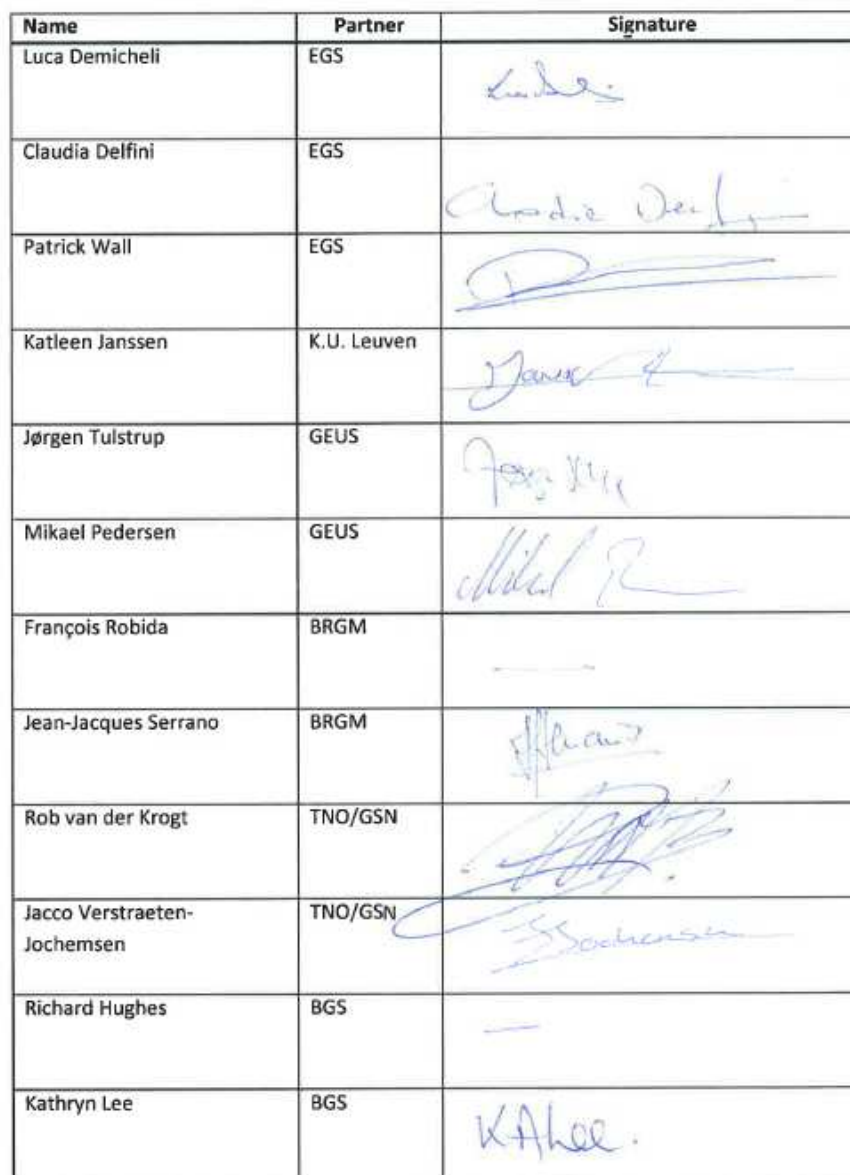 Name Partner Signature
Luca Demicheli EGS
Claudia Delfini EGS
Claudia
Patrick Wall EGS
Katleen Janssen K.U. Leuven
Jørgen Tulstrup GEUS
Mikael Pedersen GEUS
François Robida BRGM
—
Jean-Jacques Serrano BRGM
Rob van der Krogt TNO/GSN
Jacco Verstraeten- TNO/GSN
Jochemsen
Richard Hughes BGS
—
Kathryn Lee BGS
KALee.